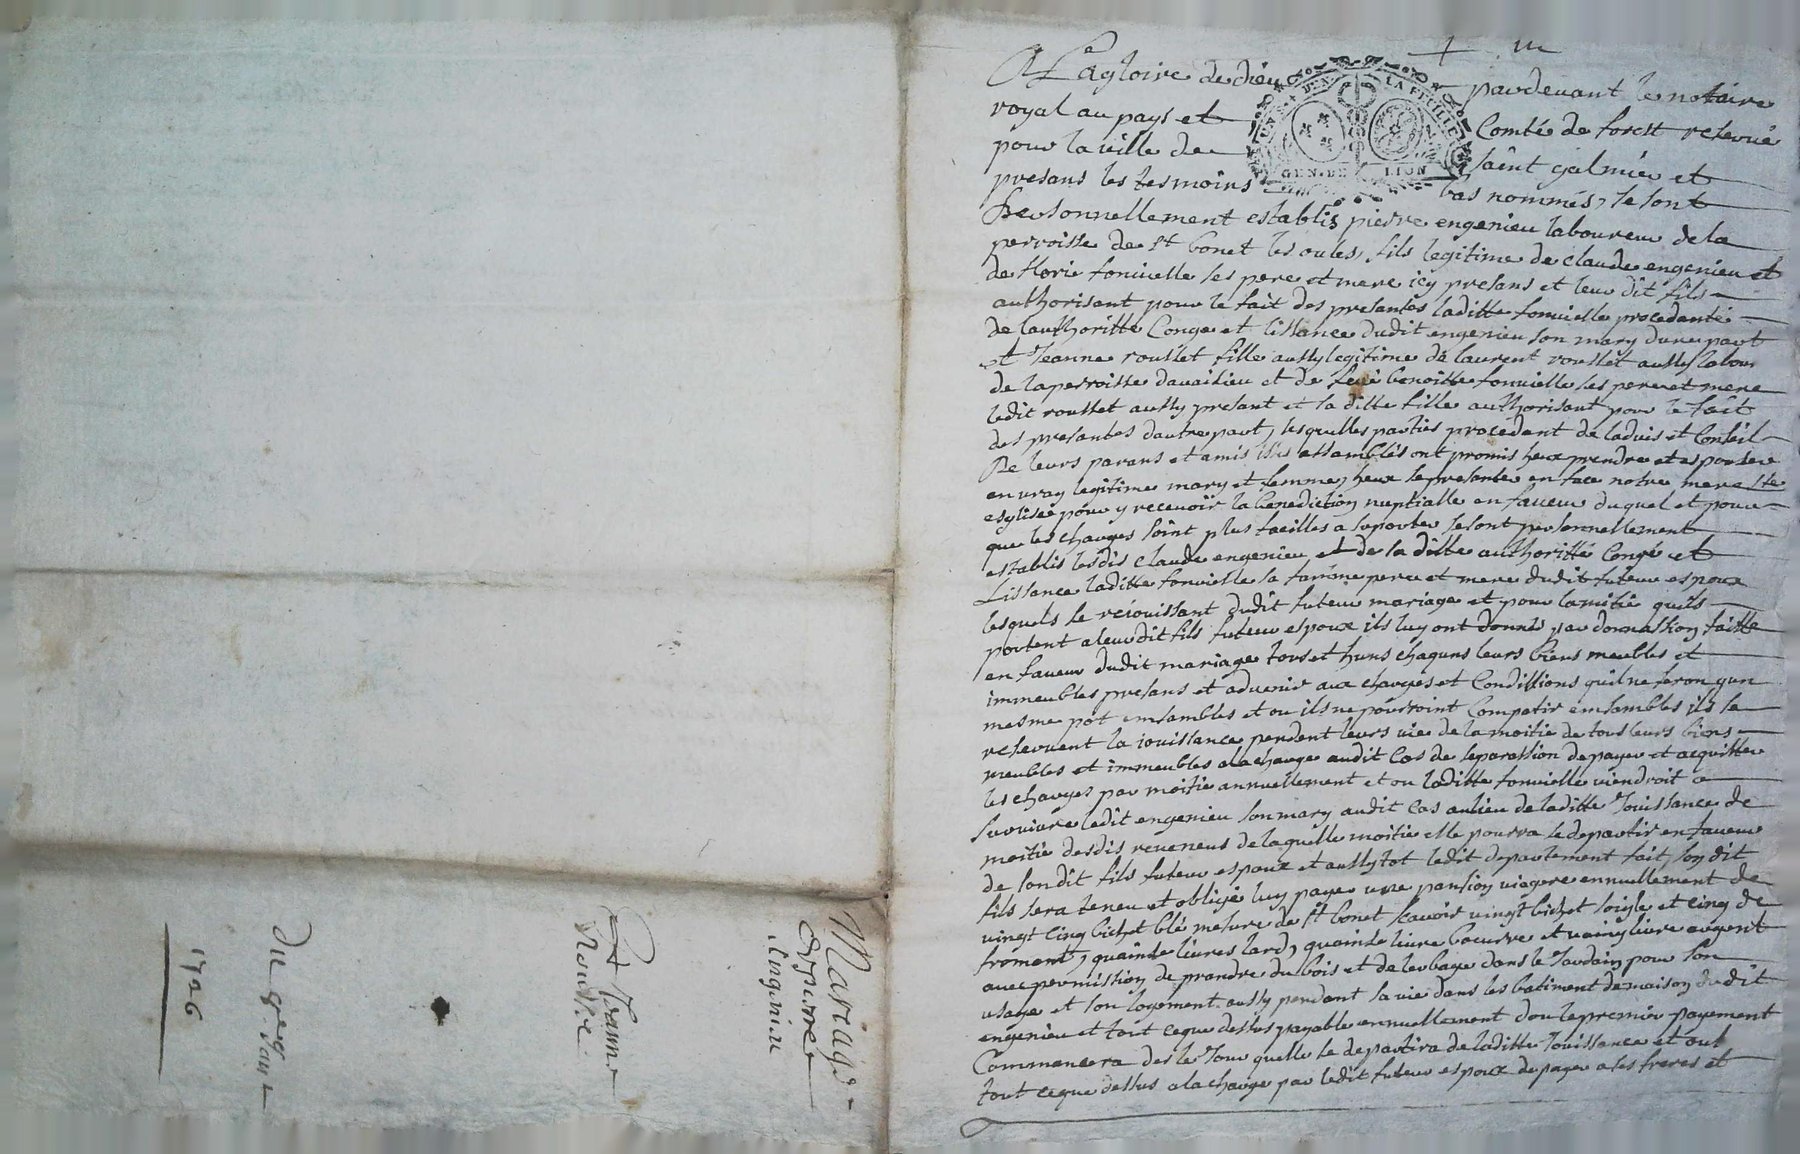 Mariage
de pierre
Engenieu
Et Jeanne
Rousset
Du 9e
1706
A La gloire de dieu pardevant le notaire
royal au pays et Comté de forest reservé
pour la ville de saint galmier et
presans les tesmoins bas nommés, se sont
UNE LA FEUILLE
GEN. DE LION
Personnellement establis pierre engenieu laboureur de la
perroisse de st bonet les oules, fils legitime de claude engenieu et
de florie fonvielle ses pere et mere icy presans et leur dit fils
authorisant pour le fait des presantes laditte fonvielle procedante
de lauthoritté Congé et lissance dudit engenieu son mary dune part
et Jeanne rousset fille aussy legitime de laurent rousset aussy labour
de la perroisse davaisieu et de feue benoitte fonvielle ses pere et mere
ledit rousset aussy presant et sa ditte fille authorisant pour le fait
des presantes dautre part, lesquelles parties procedant de ladvis et Conseil
De leurs parans et amis issis assamblés ont promis heux prendre et espouser
en vray legitime mary et femme, heux se presanter en face notre mere ste
esglise pour y recevoir la benediction nuptialle en faveur duquel et pour
que les charges soint plus facilles a suporter se sont personnellement
establis lesdis claude engenieu et de sa ditte authoritté Congé et
Lissance laditte fonvielle sa famme pere et mere dudit futeur espoux
lesquels se rejouissant dudit futeur mariage et pour lamitié quils
portent a leurdit fils futeur espoux ils luy ont donnés par donnassion faitte
en faveur dudit mariage tous et huns chaquns leurs biens meubles et
immeubles presans et advenir aux charges et Condissions quil ne feron qun
mesme pot emsambles et ou ils ne pourroint Compatir emsambles ils se
reservent la jouissance pendent leurs vie de la moitié de tous leurs biens
meubles et immeubles a la charge audit Cas de separassion de payer et acquitter
les charges par moitié annuellement et ou laditte fonvielle viendroit a
survivre ledit engenieu son mary audit Cas aulieu de laditte Jouissance de
moitié desdis reveneus de laquelle moitié elle pourra se departir en faveur
de sondit fils futeur espoux et aussytot ledit departement fait, son dit
fils sera teneu et obligé luy payer une pansion viagere annuellement de
vingt cinq bichet blé mesure de st bonet scavoir vingt bichet soigle et cinq de
froment, quainze livres lard, quainze livre beurre et livre argent
avec permission de prandre du bois et de lerbage dans le Jardain pour son
usage et son logement aussy pendant sa vie dans les batiment de maison dudit
engenieu et tout ceque dessus payable annuellement dont le premier payement
Commencera des le Jour quelle se departira de laditte Jouissance et out
tout ceque dessus a la charge par ledit futeur espoux de payer a ses freres et